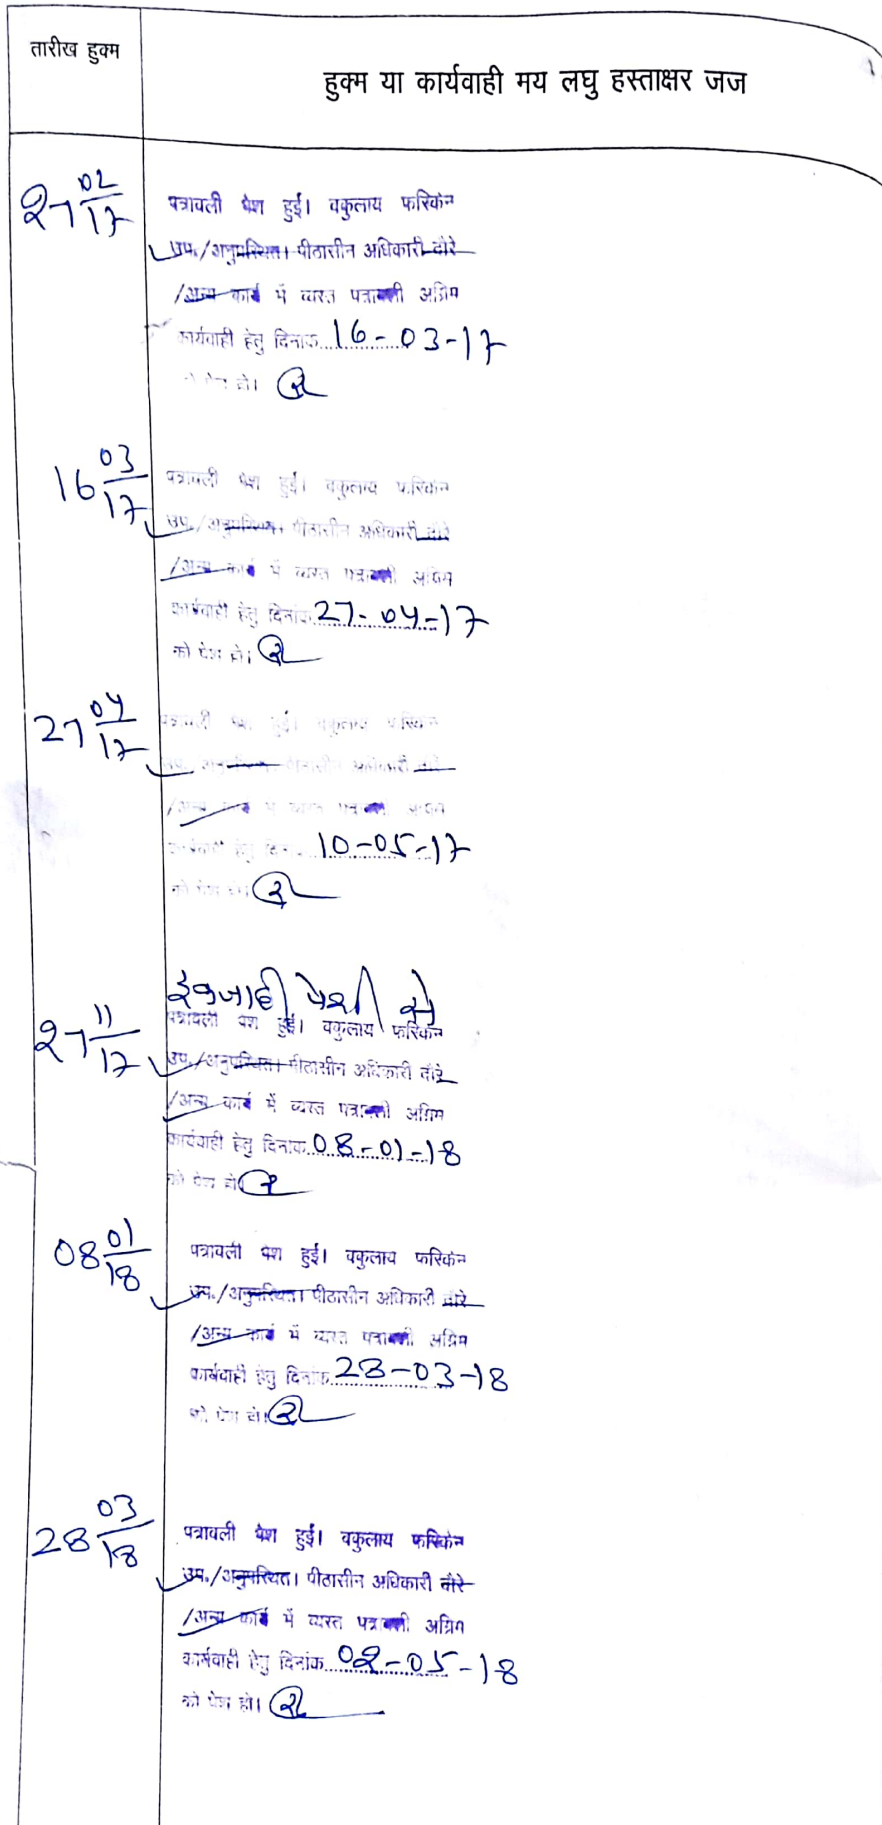 तारीख हुक्म
हुक्म या कार्यवाही मय लघु हस्ताक्षर जज
27 02/17
पत्रावली पेश हुई। वकुलाय फरिकेन
उप./अनुपस्थित। पीठासीन अधिकारी दौरे
/अन्य कार्य में व्यस्त पत्रावली अग्रिम
कार्यवाही हेतु दिनांक 16-03-17
को पेश हो।
16 03/17
पत्रावली पेश हुई। वकुलाय फरिकेन
उप./अनुपस्थित। पीठासीन अधिकारी दौरे
/अन्य कार्य में व्यस्त पत्रावली अग्रिम
कार्यवाही हेतु दिनांक 27-04-17
को पेश हो।
27 04/17
पत्रावली पेश हुई। वकुलाय फरिकेन
उप./अनुपस्थित। पीठासीन अधिकारी दौरे
/अन्य कार्य में व्यस्त पत्रावली अग्रिम
कार्यवाही हेतु दिनांक 10-05-17
को पेश हो।
27 11/17
पेशी से
पत्रावली पेश हुई। वकुलाय फरिकेन
उप./अनुपस्थित। पीठासीन अधिकारी दौरे
/अन्य कार्य में व्यस्त पत्रावली अग्रिम
कार्यवाही हेतु दिनांक 08-01-18
को पेश हो
08 01/18
पत्रावली पेश हुई। वकुलाय फरिकेन
उप./अनुपस्थित। पीठासीन अधिकारी दौरे
/अन्य कार्य में व्यस्त पत्रावली अग्रिम
कार्यवाही हेतु दिनांक 28-03-18
को पेश हो।
28 03/18
पत्रावली पेश हुई। वकुलाय फरिकेन
उप./अनुपस्थित। पीठासीन अधिकारी दौरे
/अन्य कार्य में व्यस्त पत्रावली अग्रिम
कार्यवाही हेतु दिनांक 02-05-18
को पेश हो।